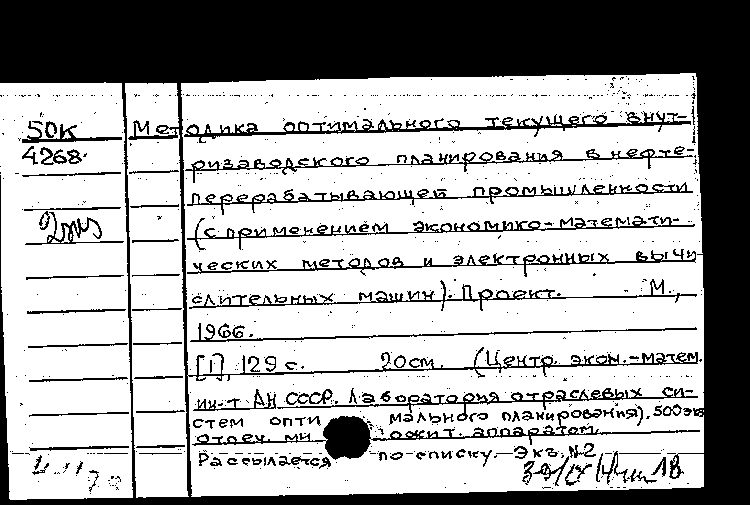 50К Методика оптимального текущего внут-
4268. ризаводского планирования в нефте-
перерабатывающей промышленности
2экз (с применением экономико-математи-
ческих методов и электронных вычи
слительных машин). Проект. М.,
1966.
[1], 129 с. 20см. (Центр. экон.-матем.
ин-т АН СССР. Лаборатория отраслевых си-
стем оптимального планирования), 500экз
отпеч. множит. аппаратом.
Рассылается по списку. Экз. №2